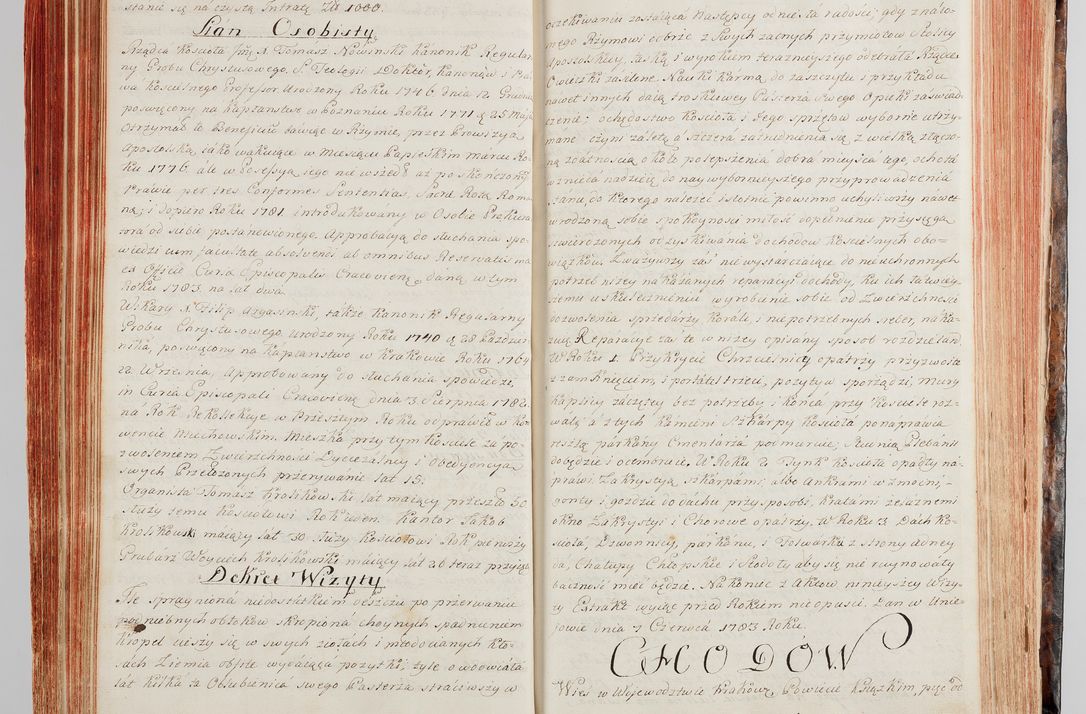 stanie się na czystą Intratę Zł 1000.
Stan Osobisty
Rządca Kościoła Jmć X. Tomasz Nowinski Kanonik Regular
ny Grobu Chrystusowego, S. Teologii Doktor, Kanonów i Pra
wa kościelnego Professor Urodzony Roku 1746 dnia 12 Grudnia
poświęcony na Kapłanstwo w Poznaniu Roku 1771 d 25 Maja
Otrzymał te Beneficium bawiąc w Rzymie, przez Prowizyą
Apostolską, jako wakujące w Miesiącu Papieskim marcu Ro
ku 1776, ale w Possessyą jego nie wszedł aż po skończonym
Prawie per tres Conformes Sententias, Sacræ Rotæ Roma
næ, i dopiero Roku 1781 introdukowany w Osobie Prokura
tora od siebie postanowionego. Approbatyą do słuchania spo-
wiedzi cum facultate absolvendi ab omnibus Reservatis ma
ex Officio Curiæ Episcopalis Cracovien. daną w tym
Roku 1783 na lat dwa.
Wikary X. Filip Argasinski, także Kanonik Regularny
Grobu Chrystusowego urodzony Roku 1740 d 28 Pazdzier
nika, poswięcony na Kapłanstwo w Krakowie Roku 1764
22 Wrzesnia, Approbowany do słuchania spowiedzi,
in Curia Episcopali Cracovien. dnia 3 Sierpnia 1782.
na Rok. Rekolekcye w Przeszłym Roku odprawił w Kon
wencie Miechowskim. Mieszka przy tym kosciele za po-
zwoleniem Zwierzchności Dyecezalney i Obedyencyą
swych Przełożonych przerywanie lat 15.
Organista Tomasz Krolikowski lat maiący przeszło 50
służy temu kościołowi Rok ieden. Kantor Jakob
Krolikowski maiący lat 30 służy Kosciołowi Rok pierwszy
Grabarz Woyciech Krolikowski maiący lat 26 teraz przyięty
Dekret Wizyty
Ile spragniona niedostatkiem deszczu po przerwaniu
podniebnych obłoków skropiona choynych spadnieniem
Kropel cieszy się w swych ziołach i młodocianych kło-
sach Ziemia obfite wydaiąca pozytki, tyle owdowiała
lat kilka ta Oblubienica swego Pasterza straciwszy w
oczekiwaniu zostaiąca Następcy odnie ła radości, gdy znaio-
mego Rzymowi odbrie z Swych zacnych przymiotow Stolicy
Apostolskiey, łaską i wyrokiem teraznieyszego odebrała Rządcę.
Owieczki zasilene Nauki Karmą, do zaszczytu i przykładu
nawet innych daią troskliwey Pasterza Swego Opieki zaświad-
czenie; ochędostwo Kościoła i Jego sprzętow wybornie utrzy-
mane czyni zaletę, a szczera zatrudnienia się z wielką złączo-
ną zdatnością około polepszenia dobra mieysca tego, ochota
wznieca nadzieię do naywybornieyszego przyprowadzenia
stanu, do ktorego należeć istotnie powinno uchyliwszy nawet
wrodzoną sobie spokoyności miłość dopełnienie przysięgą
stwierdzonych odzyskiwania dochodow Kościelnych obo-
wiązkow. Zważywszy zaś niewystarczaiące do nieuchronnych
potrzeb niżey nakazanych reparacyi dochody, ku ich łatwiey-
szemu uskutecznieniu wyrobienie sobie od Zwierzchności
dozwolenia sprzedarzy Korali, i niepotrzebnych sreber, naka-
zuię Reparacye zaś te w niżey opisany sposob rozdzielam
W Roku 1. Przykrycie Chrzcielnicy opatrzy przyzwoita
z zamknięciem, i portatel trzeci, pozytyw sporządzi, mury
Kaplicy zaczętey bez potrzeby i końca przy Kościele roz-
walą, a z tych kamieni Szkarpy kościoła ponaprawia
resztą parkany Cmentarza podmuruie; Studnią Plebańską
dobędzie i ocembruie. W Roku 2. Tynk Kościoła opadły na-
prawi. Zakrystyą szkarpami, albo Ankrami wzmocni,
gonty i gozdzie do dachu przysposobi, kratami żelaznemi
okno Zakrystyi i Chorowe opatrzy. W Roku 3. Dach Ko-
ścioła, Dzwonnicy, parkanu, i Folwarku z strony drugiey
da, Chałupy Chłopskie i Stodoły aby się nie ruynowały
baczność mieć będzie. Nakoniec z Aktow ninieyszey Wizy-
ty Extrakt wyiąć przed Rokiem nieopuści. Dan w Unie-
jowie dnia 7 Czerwca 1783 Roku.
CHODÓW
Wieś w Wojewodztwie Krakow: Powiecie Książkim, pięć od